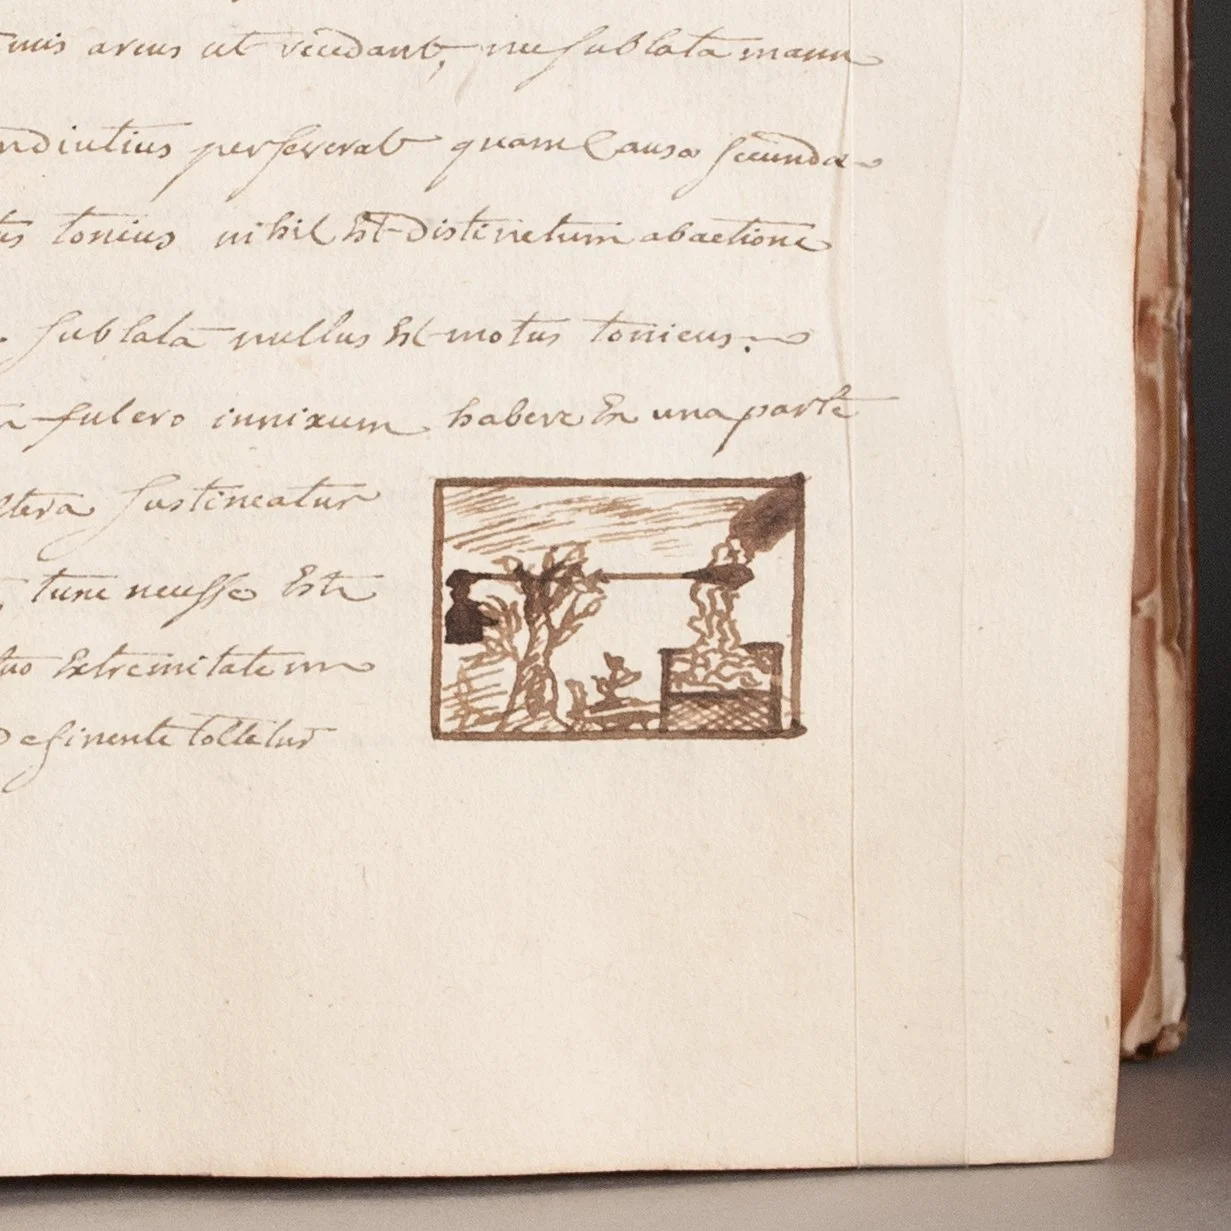 arcus ut recedant, ne sublata manu
diutius perseverat quam Causa secunda
tonicus nihil Est Distinctum ab actione
sublata nullus Est motus tonicus.
fulcro innixum habere Ex una parte
altera sustineatur
tunc necesse Est
Extremitatem
Desinente tollitur